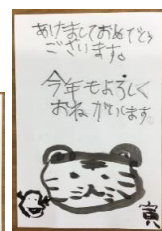 あけましておめでとう
ございます。
今年もよろしく
おねがいします
寅